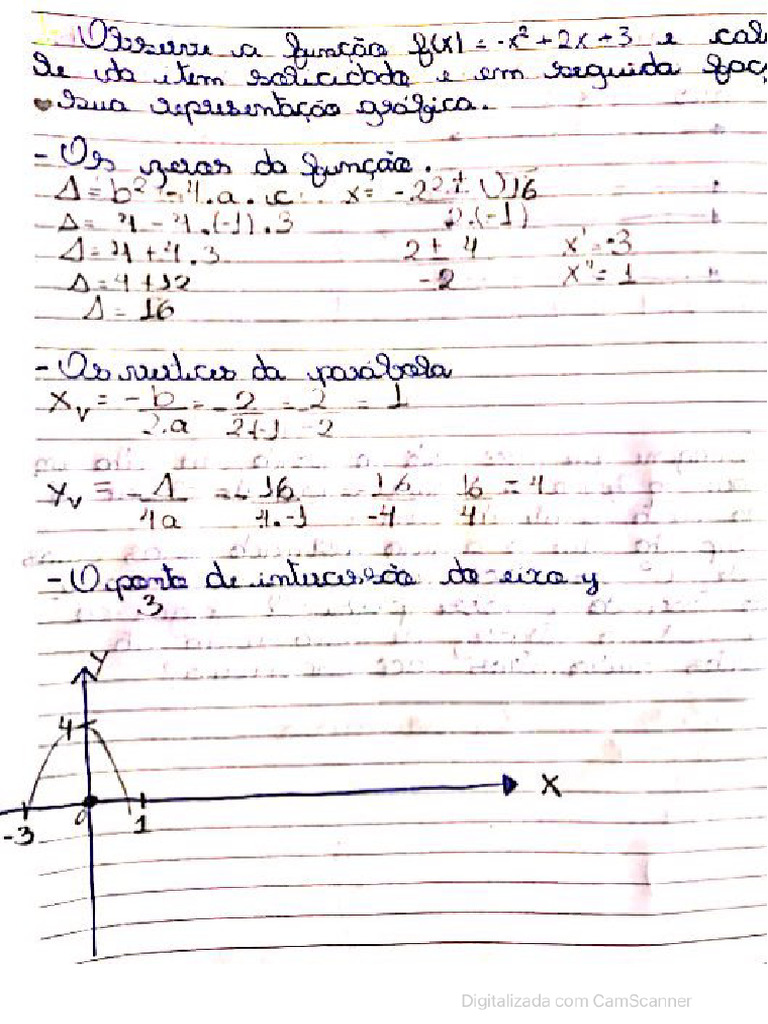 Observe a função f(x) = -x² + 2x + 3 e cal
le da item solicidado e em seguida faç
sua representação gráfica.
- Os zeros da função.
Δ = b² - 4.a.c x = -2 ± √16
Δ = 4 - 4.(-1).3 2.(-1)
Δ = 4 + 4.3 2 ± 4 x' = -3
Δ = 4 + 12 -2 x" = 1
Δ = 16
- Os vertices da parábola
Xv = -b = -2 = 2 = 1
2.a 2(-1 -2
Yv = -Δ = - 16 = 16 16 = 4
4a 4.-1 -4 4
- O ponto de intersessão do eixo y
3
Y
4
X
-3 0 1
Digitalizada com CamScanner